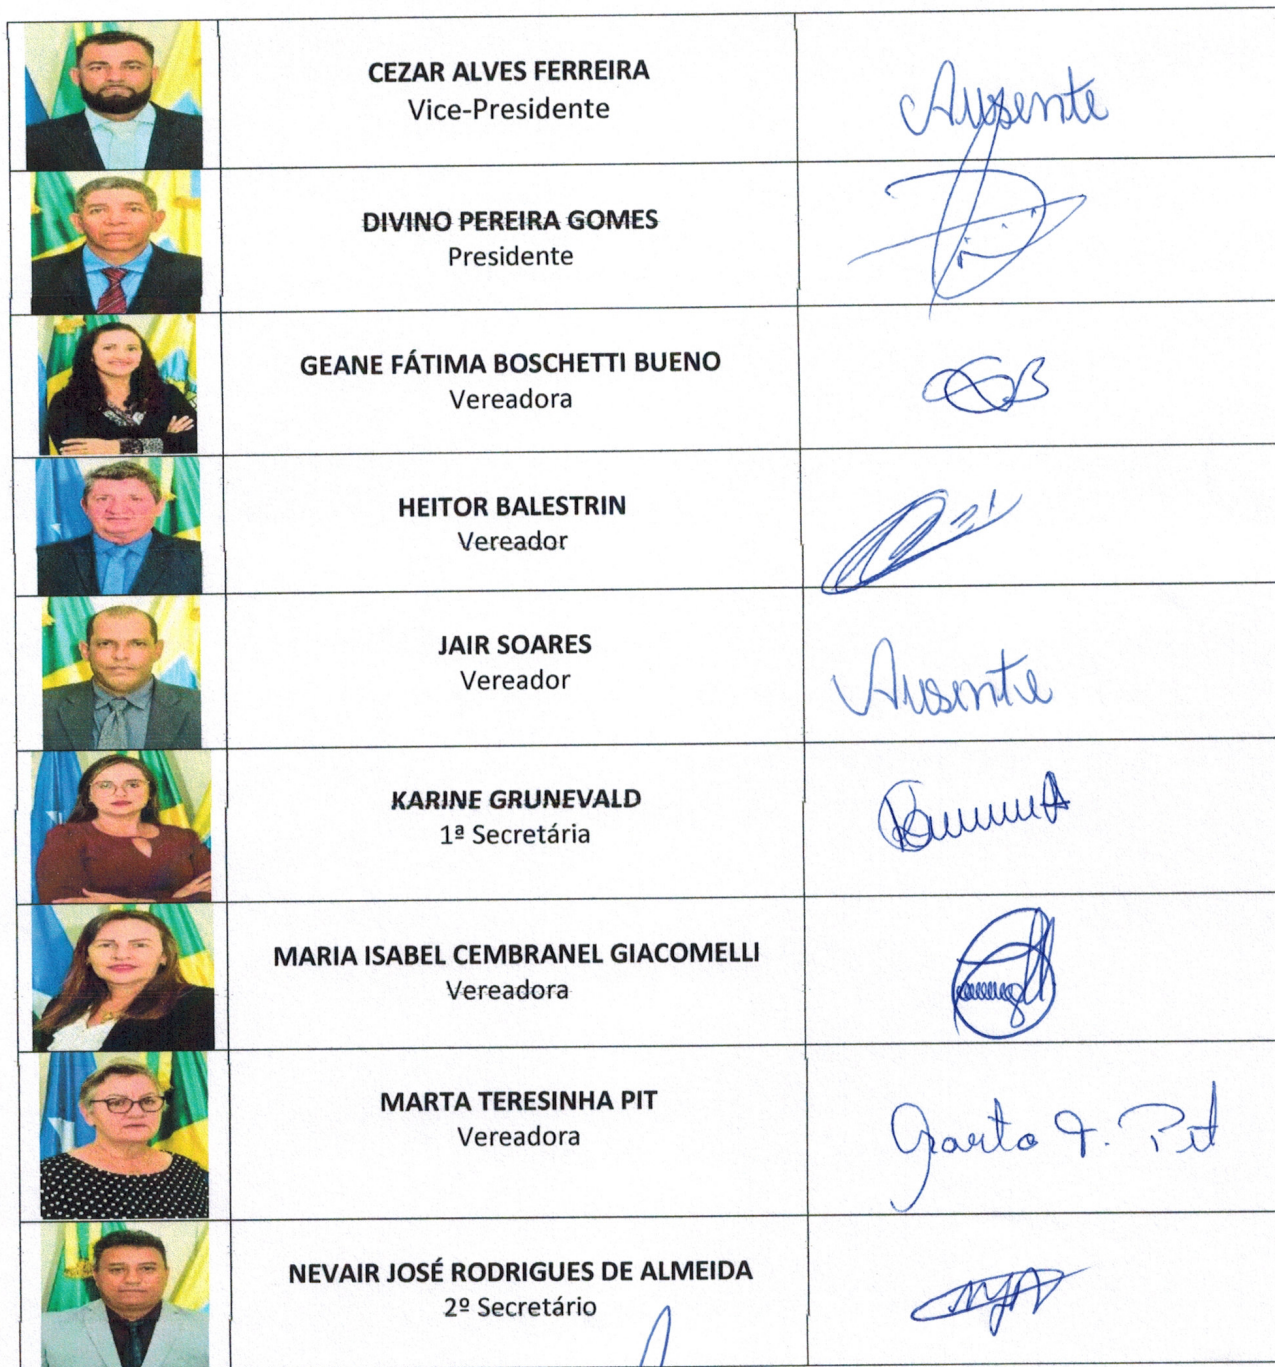 CEZAR ALVES FERREIRA
Vice-Presidente
Ausente
DIVINO PEREIRA GOMES
Presidente
GEANE FÁTIMA BOSCHETTI BUENO
Vereadora
HEITOR BALESTRIN
Vereador
JAIR SOARES
Vereador
Ausente
KARINE GRUNEVALD
1ª Secretária
MARIA ISABEL CEMBRANEL GIACOMELLI
Vereadora
MARTA TERESINHA PIT
Vereadora
Marta T. Pit
NEVAIR JOSÉ RODRIGUES DE ALMEIDA
2º Secretário